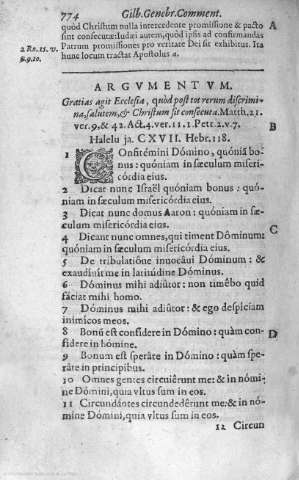 774 Gilb. Genebr. Comment.
quòd Christum nulla intercedente promissione & pacto A
sint consecutæ: Iudæi autem, quòd ipsis ad consummandas
2. Ro. 15. v. Patrum promissiones pro veritate Dei sit exhibitus. Ita
8.9.10. hunc locum tractat Apostolus
ARGVMENTVM.
Gratias agit Ecclesia, quòd post tot rerum discrimi-
na, salutem, & Christum sit consecuta. Matth. 21.
ver. 9. & 42. Act. 4. ver. 11. 1. Petr. 2. v. 7. B
Halelu ja. CXVII. Hebr. 118.
1 COnfitémini Dómino, quóniã bo-
nus: quóniam in sæculum miseri-
córdia eius.
2 Dicat nunc Israël quóniam bonus: quó-
niam in sæculum misericórdia eius.
3 Dicat nunc domus Aaron: quóniam in sæ-
culum misericórdia eius.
4 Dicant nunc omnes, qui timent Dóminum: C
quóniam in sæculum misericórdia eius.
5 De tribulatióne inuocáui Dóminum: &
exaudiuit me in latitúdine Dóminus.
6 Dóminus mihi adiútor: non timébo quid
fáciat mihi homo.
7 Dóminus mihi adiútor: & ego despíciam
inimícos meos.
8 Bonũ est confídere in Dómino: quàm con- D
fídere in hómine.
9 Bonum est speráte in Dómino: quàm spe-
ráte in princípibus.
10 Omnes gentes circuiérunt me: & in nómi-
ne Dómini, quia vltus sum in eos.
11 Circundántes circundedérunt me: & in nó-
mine Dómini, quia vltus sum in eos.
12 Circun